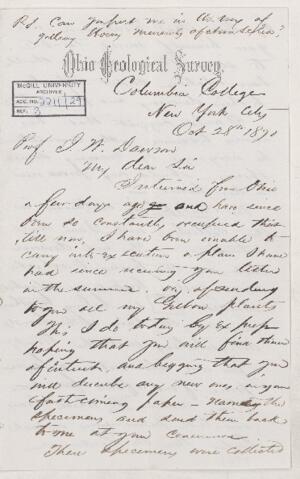 P.S. Can you put me in the way of
getting
Ohio Geological Survey
McGILL UNIVERSITY
ARCHIVES
ACC. NO. 2211/29
REF. 3
Columbia College
New York City
Oct 28th 1870
Prof. J. W. Dawson
My dear Sir
I returned from Ohio
a few days ago and have since
been so constantly occupied that
till now, I have been unable to
carry into execution a plan I have
had since receiving your letter
in the summer, of sending
to you all my Erebon plants
This I do today by Express
hoping that you will find them
of interest, and begging that you
will describe any new ones in your
forthcoming paper – name the
specimens and send them back
to me at your convenience
These specimens were collected